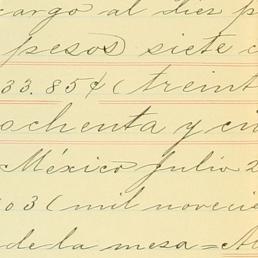 cargo al diez p
pesos) siete c
33.85¢ (treint
ochenta y cin
México Julio 2
03 (mil novecie
de la mesa = Al